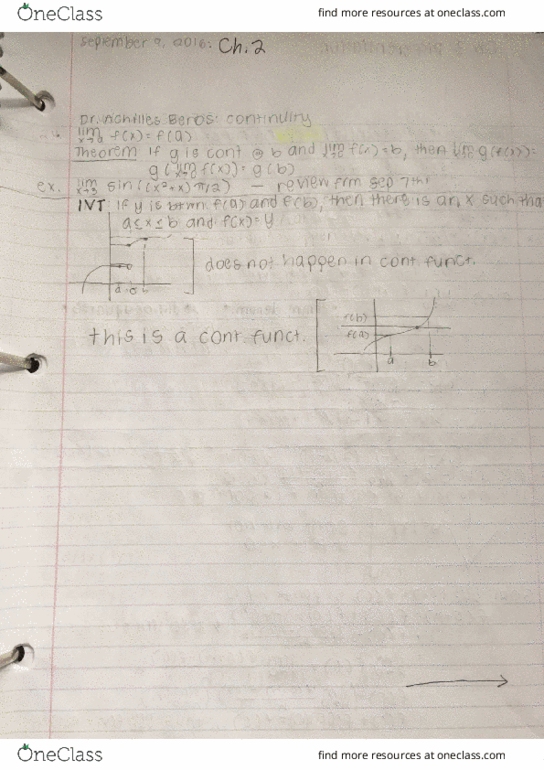 OneClass find more resources at oneclass.com
september 9, 2016: Ch.2
Dr. Achilles Beros: continuity
lim x→a f(x) = f(a)
Theorem If g is cont @ b and lim x→a f(x)=b, then lim x→a g(f(x))=
g(lim x→a f(x)) = g(b)
ex. lim x→3 sin((x²+x)π/2) – review frm sep 7th!
IVT: If y is btwn f(a) and f(b), then there is an x such tha
a≤x≤b and f(x)=y
does not happen in cont. funct.
this is a cont. funct.
f(b)
f(a)
a b
OneClass find more resources at oneclass.com